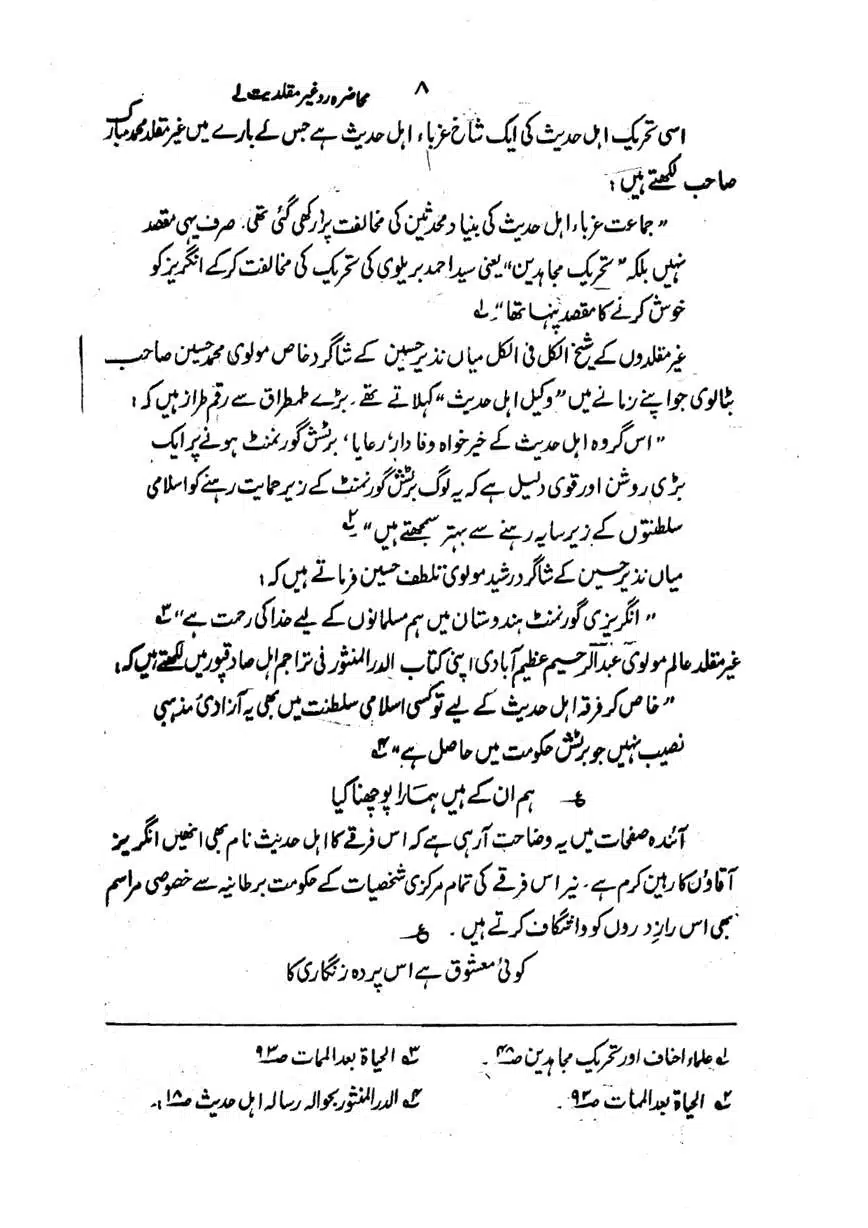 ۸
محاضرہ رد غیر مقلدیت ۱
اسی تحریک اہل حدیث کی ایک شاخ غرباء اہل حدیث ہے جس کے بارے میں غیر مقلد محمد مبارک
صاحب لکھتے ہیں:
”جماعت غرباء اہل حدیث کی بنیاد محدثین کی مخالفت پر رکھی گئی تھی۔ صرف یہی مقصد
نہیں بلکہ ”تحریک مجاہدین“ یعنی سید احمد بریلوی کی تحریک کی مخالفت کرکے انگریز کو
خوش کرنے کا مقصد پنہا تھا“۔ ۱؎
غیر مقلدوں کے شیخ الکل فی الکل میاں نذیر حسین کے شاگرد خاص مولوی محمد حسین صاحب
بٹالوی جو اپنے زمانے میں ”وکیل اہل حدیث“ کہلاتے تھے۔ بڑے طمطراق سے رقم طراز ہیں کہ:
”اس گروہ اہل حدیث کے خیر خواہ وفادار، رعایا، برٹش گورنمنٹ ہونے پر ایک
بڑی روشن اور قوی دلیل ہے کہ یہ لوگ برٹش گورنمنٹ کے زیر حمایت رہنے کو اسلامی
سلطنتوں کے زیر سایہ رہنے سے بہتر سمجھتے ہیں“ ۲؎
میاں نذیر حسین کے شاگرد رشید مولوی تلطف حسین فرماتے ہیں کہ:
”انگریزی گورنمنٹ ہندوستان میں ہم مسلمانوں کے لیے خدا کی رحمت ہے“ ۳؎
غیر مقلد عالم مولوی عبدالرحیم عظیم آبادی اپنی کتاب الدر المنثور فی تراجم اہل صادقپور میں لکھتے ہیں کہ:
”خاص کر فرقہ اہل حدیث کے لیے تو کسی اسلامی سلطنت میں بھی یہ آزادئ مذہبی
نصیب نہیں جو برٹش حکومت میں حاصل ہے“ ۴؎
؏ ہم ان کے ہیں ہمارا پوچھنا کیا
آئندہ صفحات میں یہ وضاحت آرہی ہے کہ اس فرقے کا اہل حدیث نام بھی انھیں انگریز
آقاؤں کا رہین کرم ہے۔ نیز اس فرقے کی تمام مرکزی شخصیات کے حکومت برطانیہ سے خصوصی مراسم
بھی اس راز دروں کو واشگاف کرتے ہیں۔ ؏
کوئی معشوق ہے اس پردہ زنگاری کا
۱؎ علماء احناف اور تحریک مجاہدین ص۴۸۔
۲؎ الحیاۃ بعد الممات ص۹۳۔
۳؎ الحیاۃ بعد الممات ص۹۳
۴؎ الدر المنثور بحوالہ رسالہ اہل حدیث ص۱۸۔